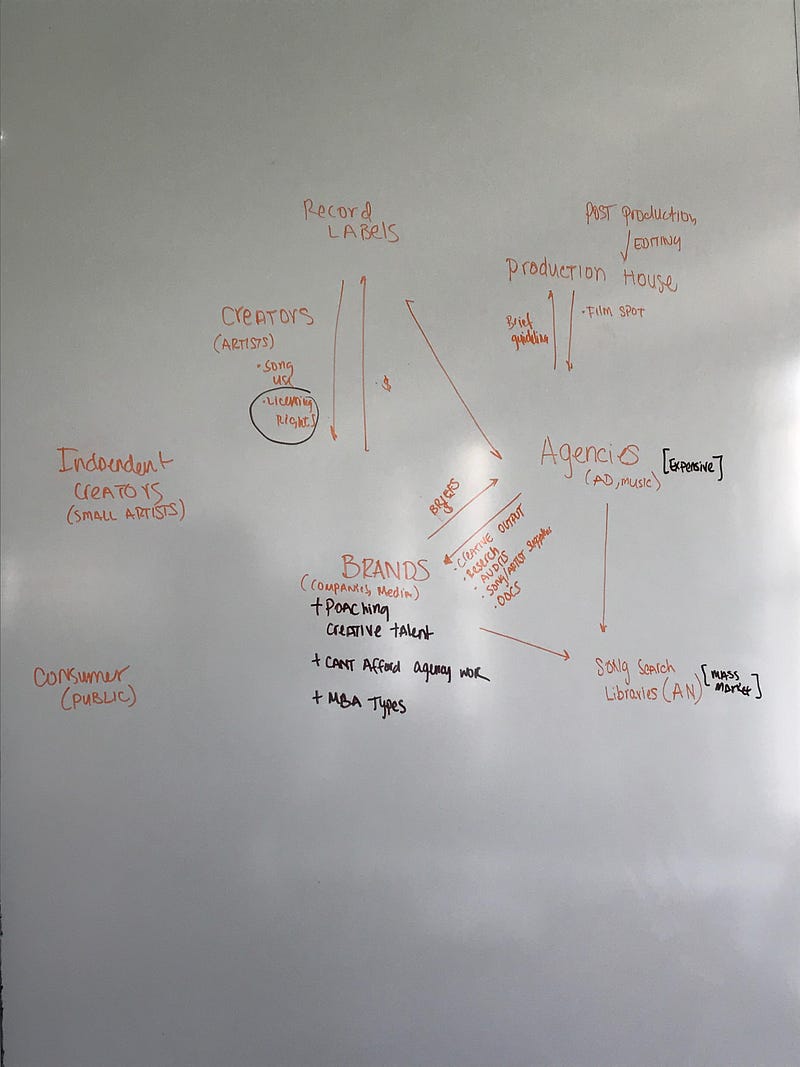 Record
LABels
POST Production,
EDITING
Production House
CREATORS
(ARTISTS)
• Song
use
• Licensing
Rights
$
Brief
guideline
• FILM SPOT
Agencies [Expensive]
(AD, music)
Indpendent
CREATORS
(SMALL ARTISTS)
BRIEFS
• CREATIVE OUTPUT
• Reserch
• AUDITS
• SONG/ARTIST
• DOCS
BRANDS
(COMPANIES, Media)
+ POAChing
CREATIVE tALENT
+ CANT Afford agency WOR
+ MBA Types
Consumer
(PUBLIC)
SONG SEARCH
Libraries (AN)
[MASS
Market]